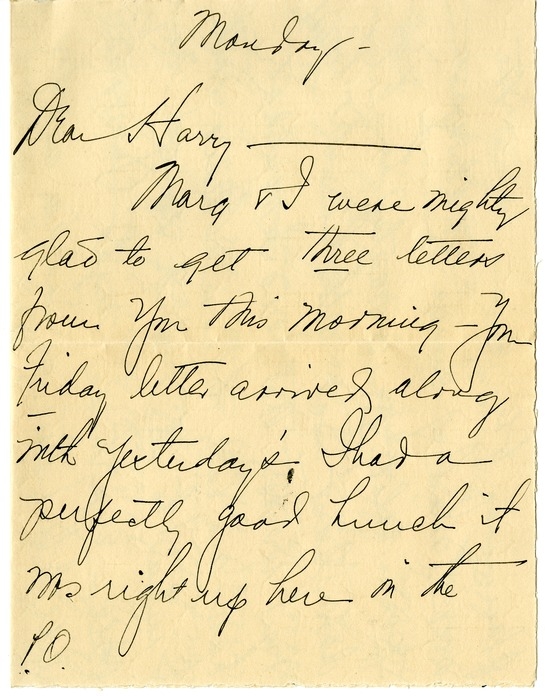 Monday -
Dear Harry ———
Marg & I were mighty
glad to get three letters
from you this morning - Your
Friday letter arrived along
with yesterday's. I had a
perfectly good hunch it
was right up here in the
P.O.